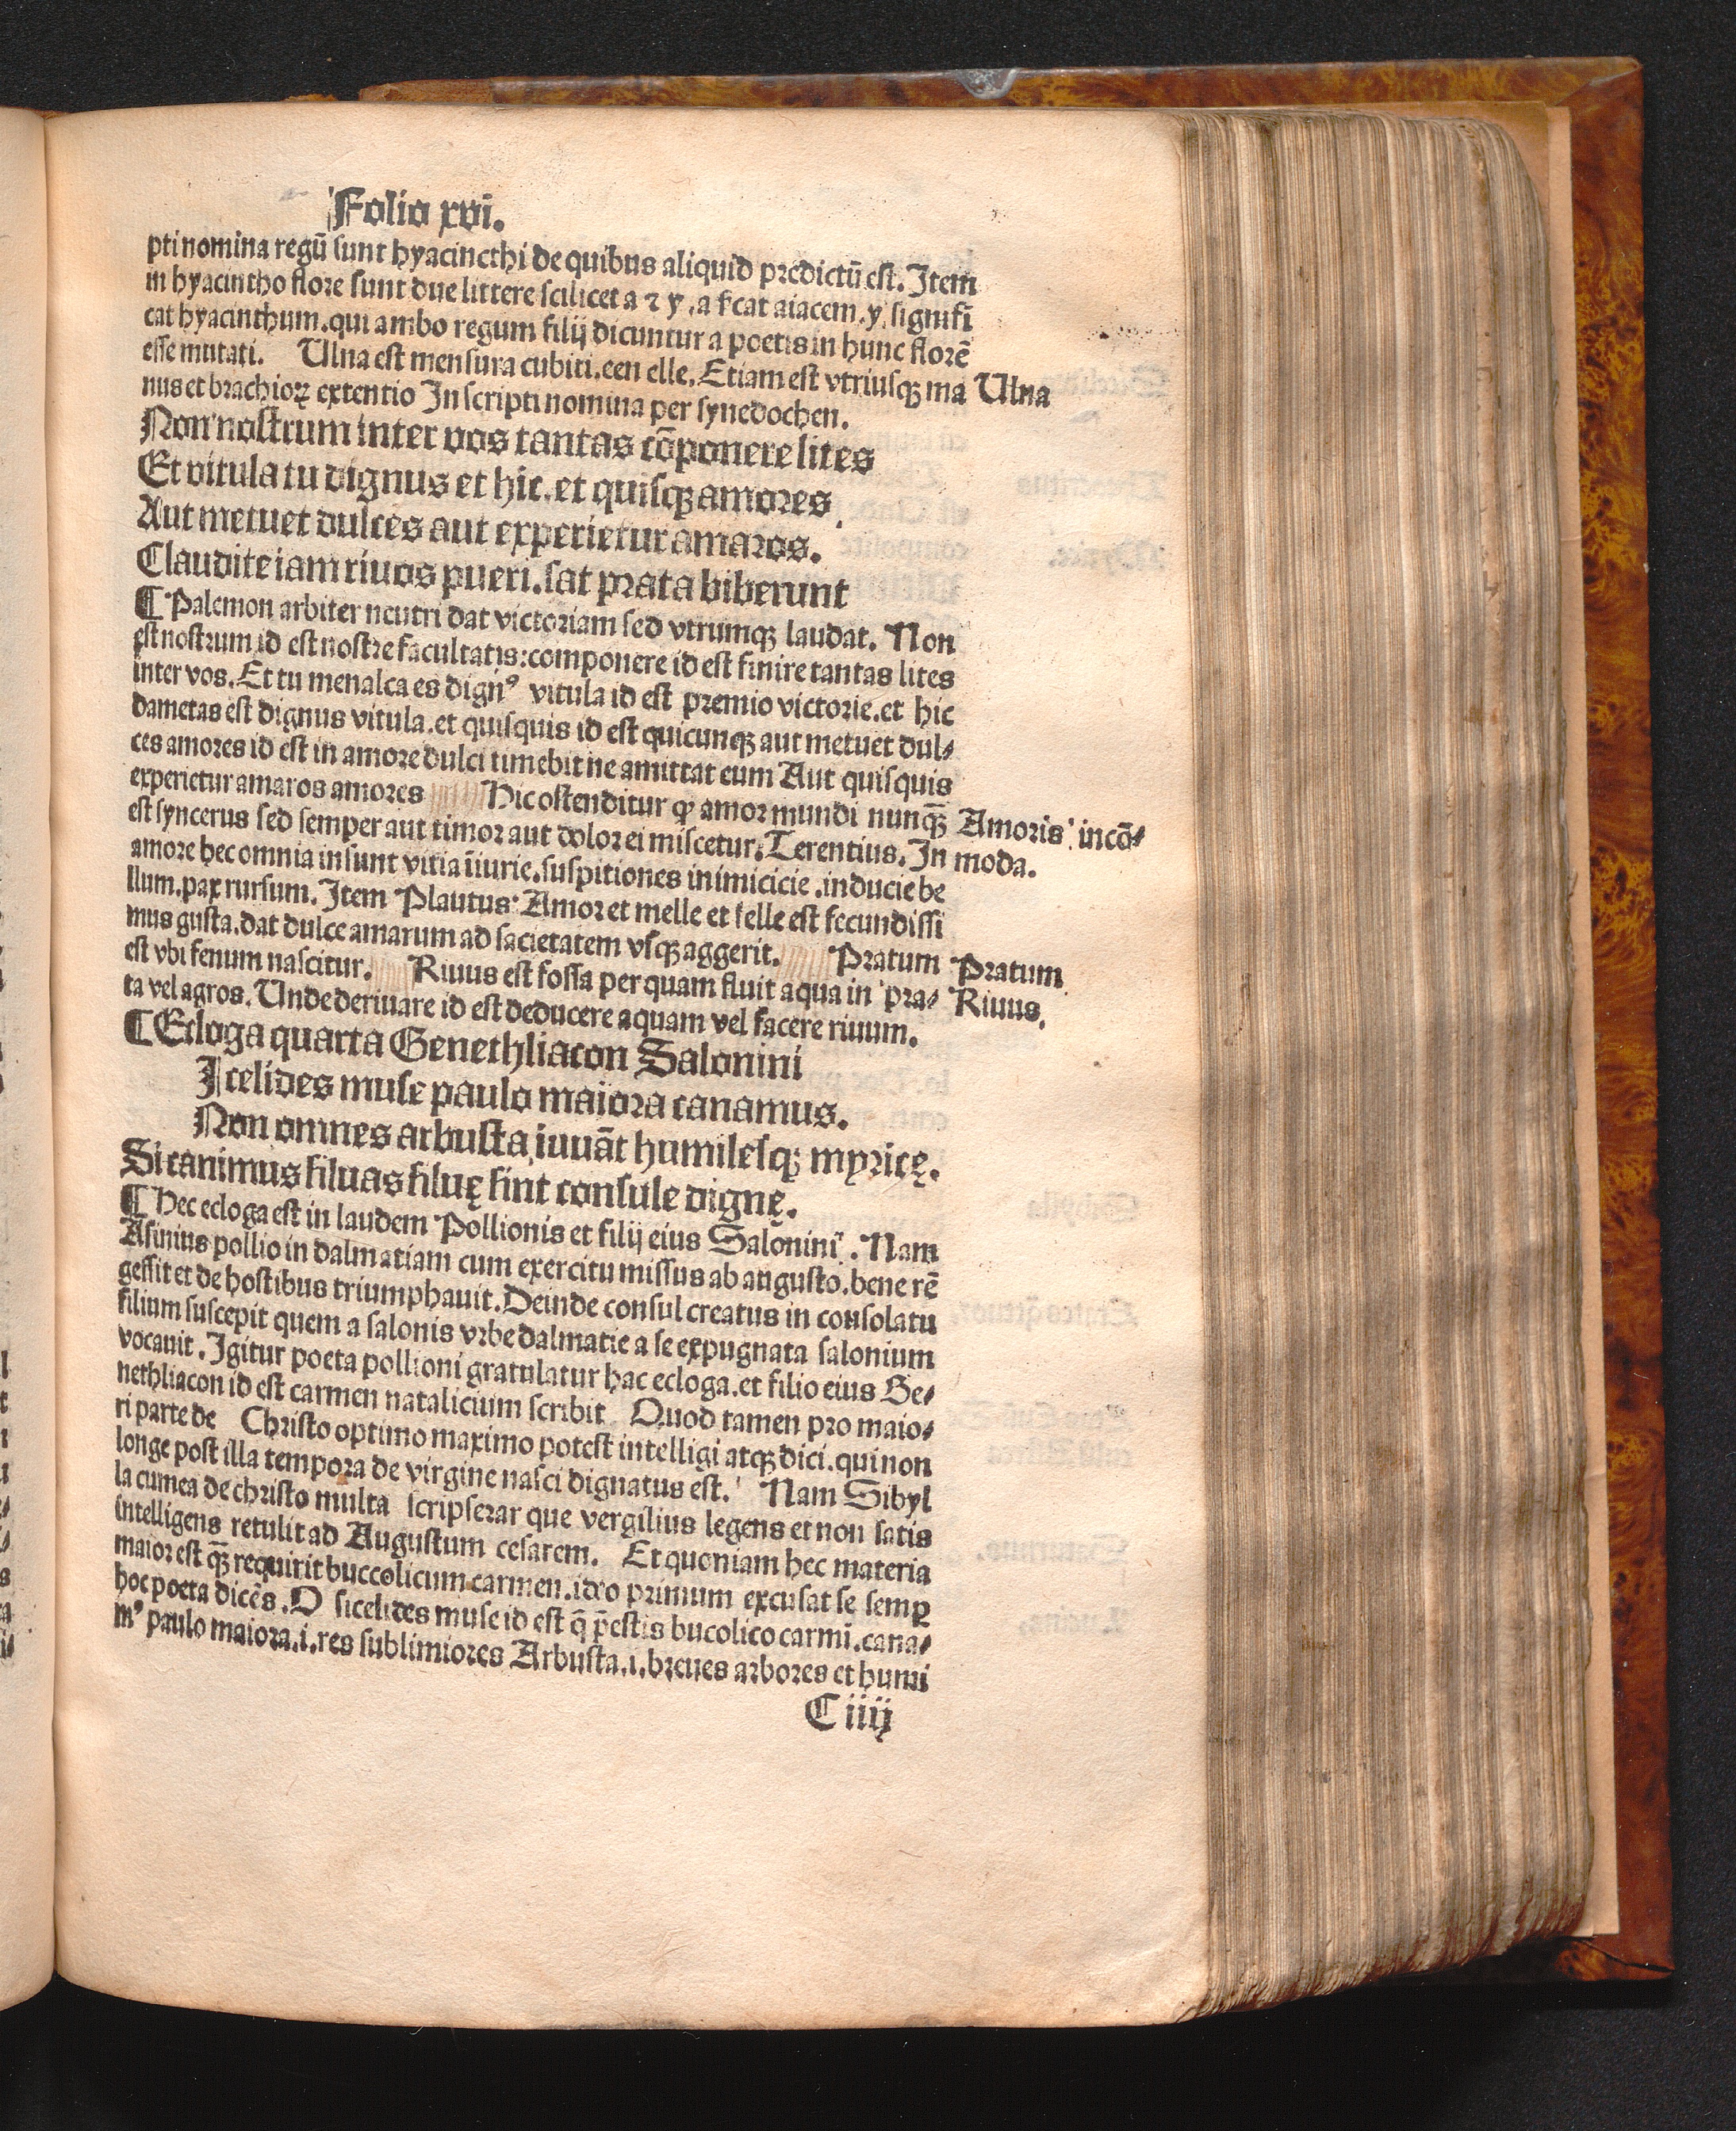 Folio xvi.
pti nomina regū sunt hyacincthi de quibus aliquid predictū est. Item
in hyacintho flore sunt due littere scilicet a ⁊ y, a ſcat aiacem. y significi
cat hyacinthum. qui ambo regum filij dicuntur a poetis in hunc florē
esse mutati. Ulna est mensura cubiti. een elle. Etiam est vtriusqꝫ ma Ulna
nus et brachioꝝ extentio In scripti nomina per synedochen.
Non nostrum inter vos tantas cōponere lites
Et vitula tu dignus et hic. et quisqꝫ amores
Aut metuet dulces aut experietur amaros.
Claudite iam riuos pueri. sat prata biberunt
¶ Palemon arbiter neutri dat victoriam sed vtrumqꝫ laudat. Non
est nostrum id est nostre facultatis: componere id est finire tantas lites
inter vos. Et tu menalca es dignꝰ vitula id est premio victorie. et hic
dametas est dignus vitula. et quisquis id est quicunqꝫ aut metuet dul⸗
ces amores id est in amore dulci timebit ne amittat eum Aut quisquis
experietur amaros amores Hic ostenditur ꝙ amor mundi nunqꝫ̄ Amoris incō⸗
est syncerus sed semper aut timor aut dolor ei miscetur. Terentius. In moda.
amore hec omnia insunt vitia īiurie. suspitiones inimicicie. inducie be
llum. pax rursum. Item Plautus. Amor et melle et felle est fecundissi
mus gusta. dat dulce amarum ad sacietatem vsqꝫ aggerit. Pratum Pratum
est vbi fenum nascitur. Riuus est fossa per quam fluit aqua in pra⸗ Riuus.
ta vel agros. Unde deriuare id est deducere aquam vel facere riuum.
¶ Ecloga quarta Genethliacon Salonini
Icelides muse paulo maiora canamus.
Non omnes arbusta iuuāt humilesqꝫ myricę.
Si canimus siluas siluę sint consule dignę.
¶ Hec ecloga est in laudem Pollionis et filij eius Salonini. Nam
Asinius pollio in dalmatiam cum exercitu missus ab augusto. bene rē
gessit et de hostibus triumphauit. Deinde consul creatus in consolatu
filium suscepit quem a salonis vrbe dalmatie a se expugnata salonium
vocauit. Igitur poeta pollioni gratulatur hac ecloga. et filio eius Ge⸗
nethliacon id est carmen natalicium scribit Quod tamen pro maio⸗
ri parte de Christo optimo maximo potest intelligi atqꝫ dici. qui non
longe post illa tempora de virgine nasci dignatus est. Nam Sibyl
la cumea de christo multa scripserar que vergilius legens et non satis
intelligens retulit ad Augustum cesarem. Et quoniam hec materia
maior est qꝫ̄ requirit buccolicum carmen. ideo primum excusat se semꝑ
hoc poeta dicēs. O sicelides muse id est q̄ p̄estis bucolico carmī. cana⸗
mꝰ paulo maiora. i. res sublimiores Arbusta. i. breues arbores et humi
C iiij